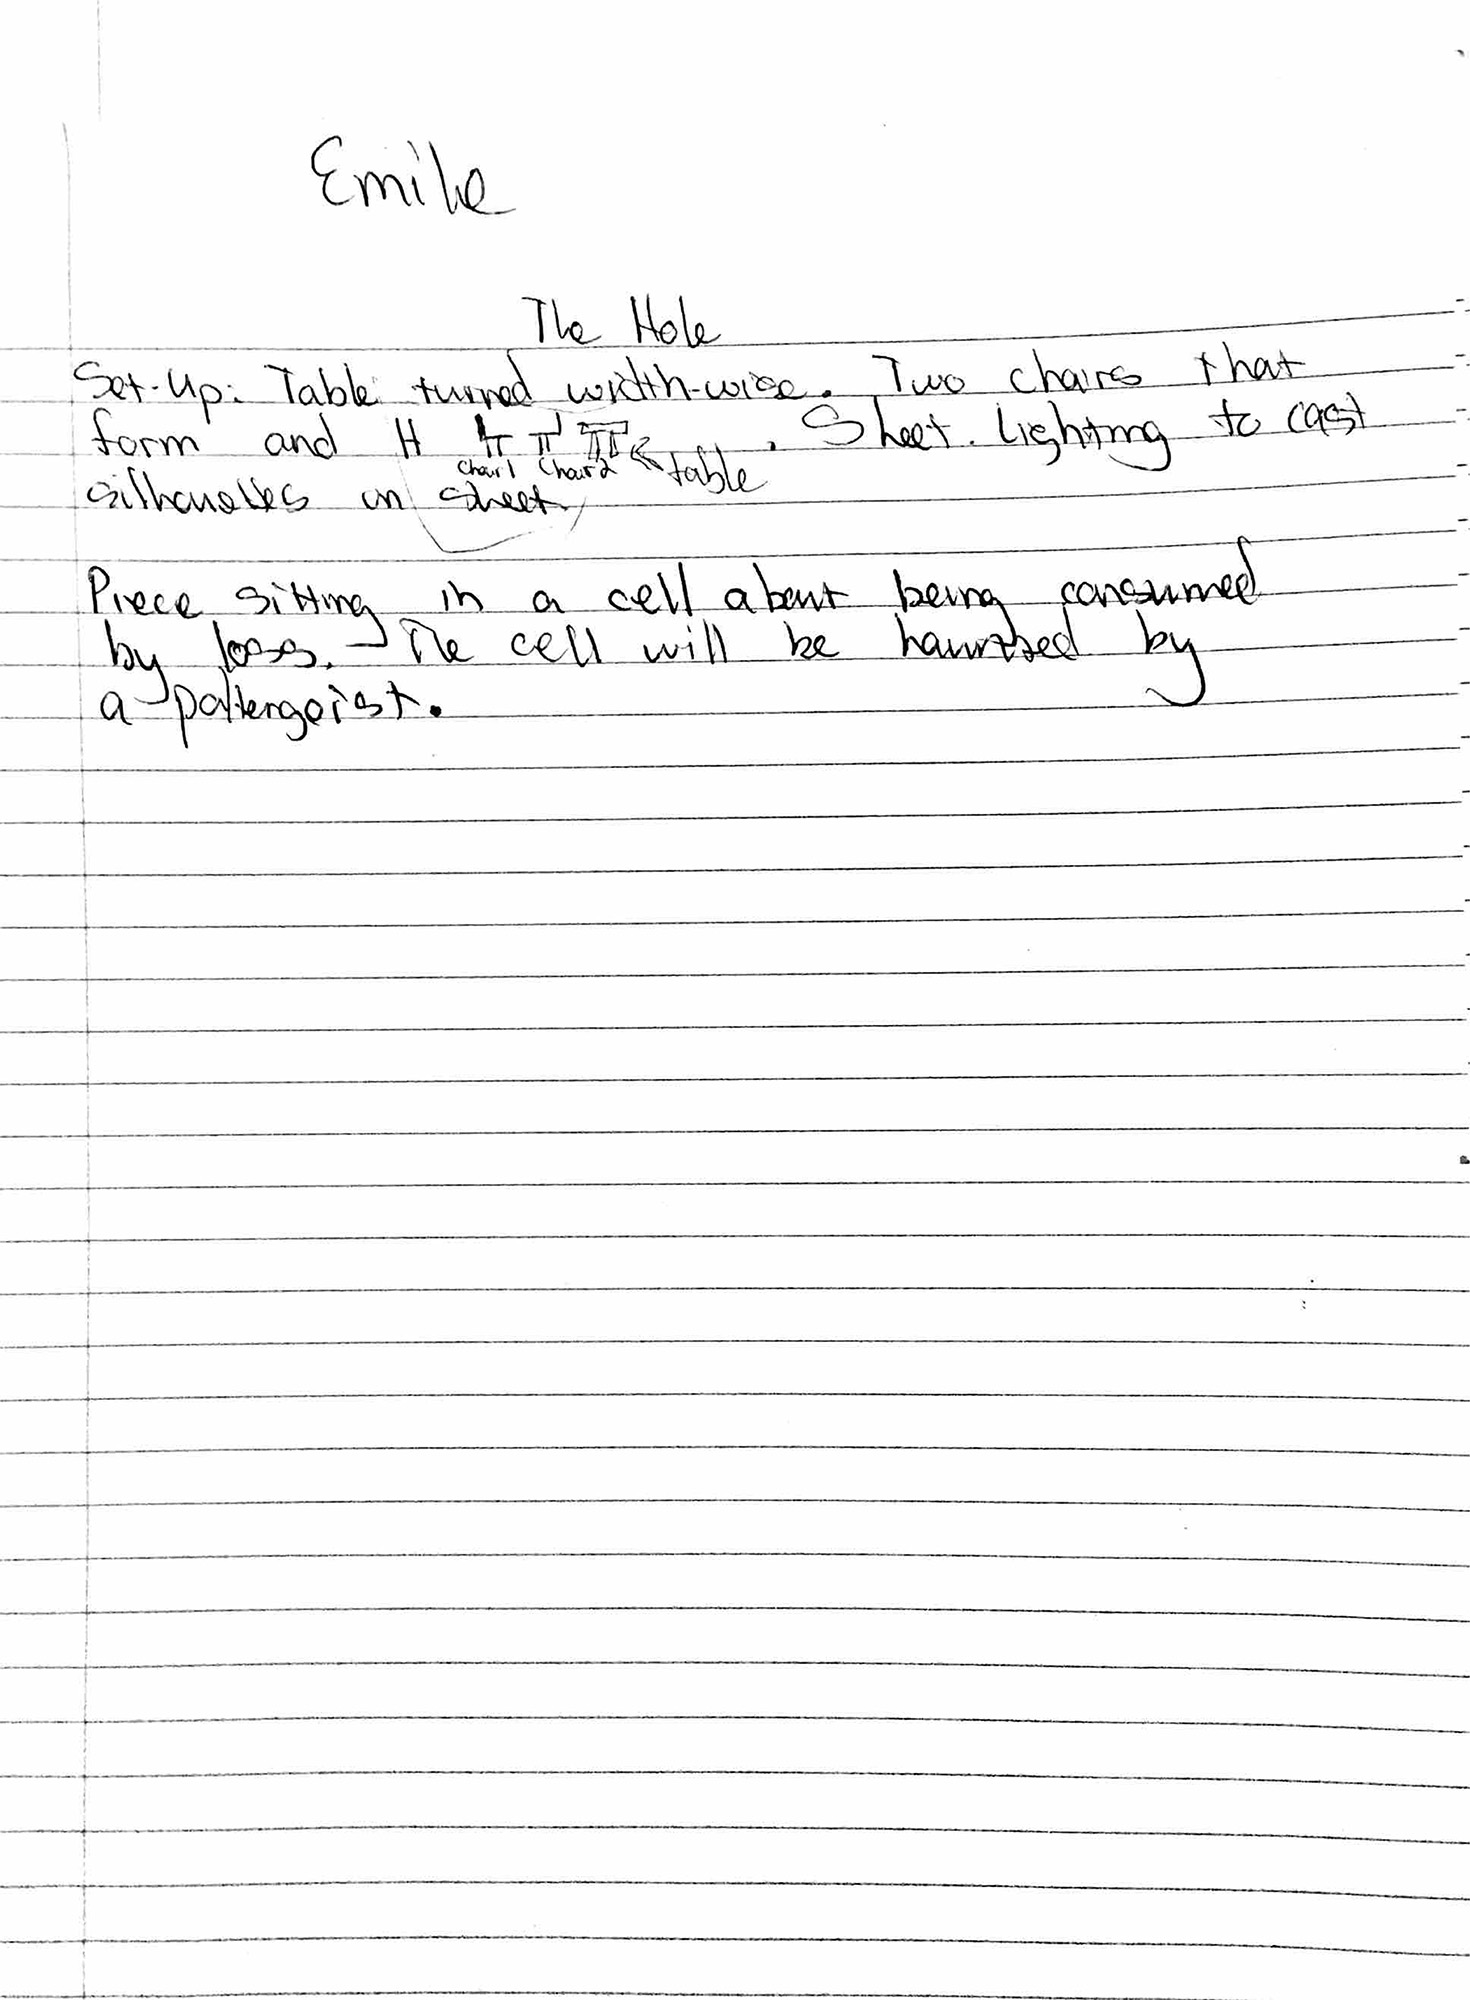 Emile
The Hole
Set-Up: Table turned width-wise. Two chairs that
form and H . Sheet. Lighting to cast
chair 1 chair 2 table
silhouettes on sheet.
Piece sitting in a cell about being consumed
by loss. The cell will be haunted by
a poltergeist.